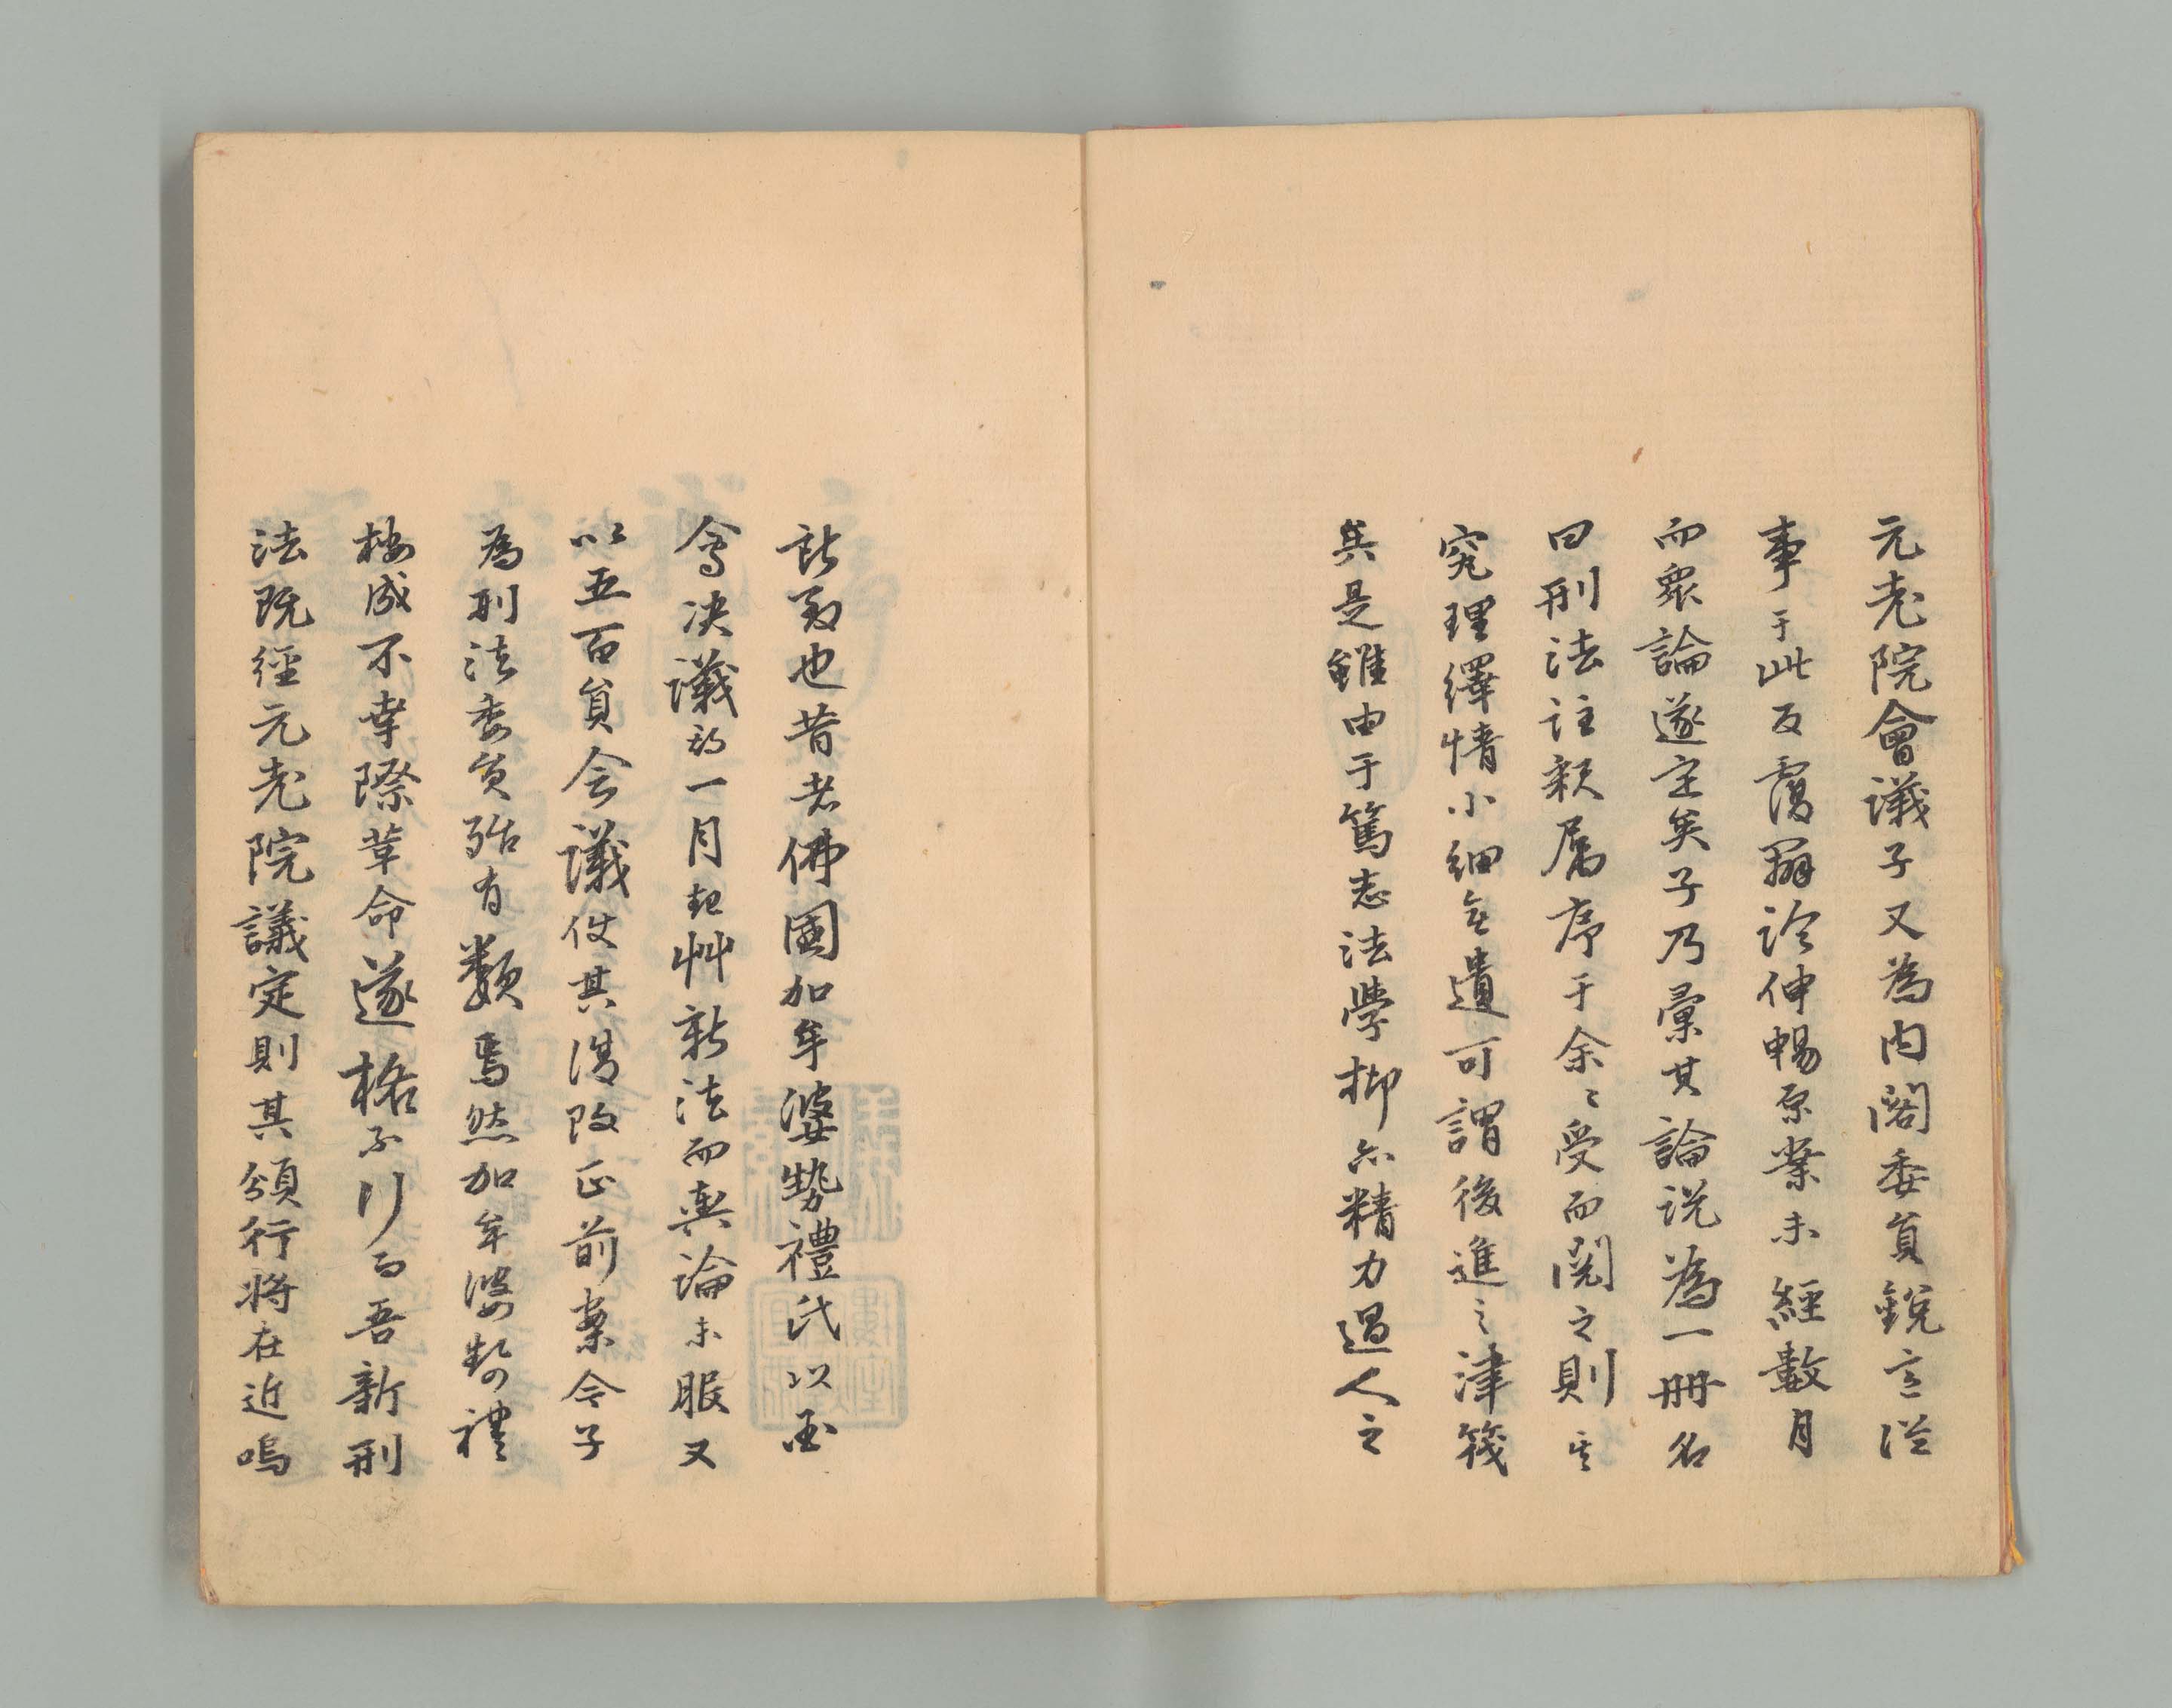 元老院會議子又為内閣委員鋭意從
事于此反覆辯論伸暢原案未經數月
而衆論遂定矣子乃彙其論説為一冊名
曰刑法註釈属序于余〻受而閲之則其
究理繹情小細無遺可謂後進之津筏
矣是雖由于篤志法學抑亦精力過人之
所致也昔者佛國加牟婆勢禮氏以国
會决議的一月起艸新法而輿論未服又
以五百員会議使其得改正前案今子
為刑法委員殆有類焉然加牟婆勢禮
按成不幸際革命遂格不行而吾新刑
法既經元老院議定則其頒行将在近嗚